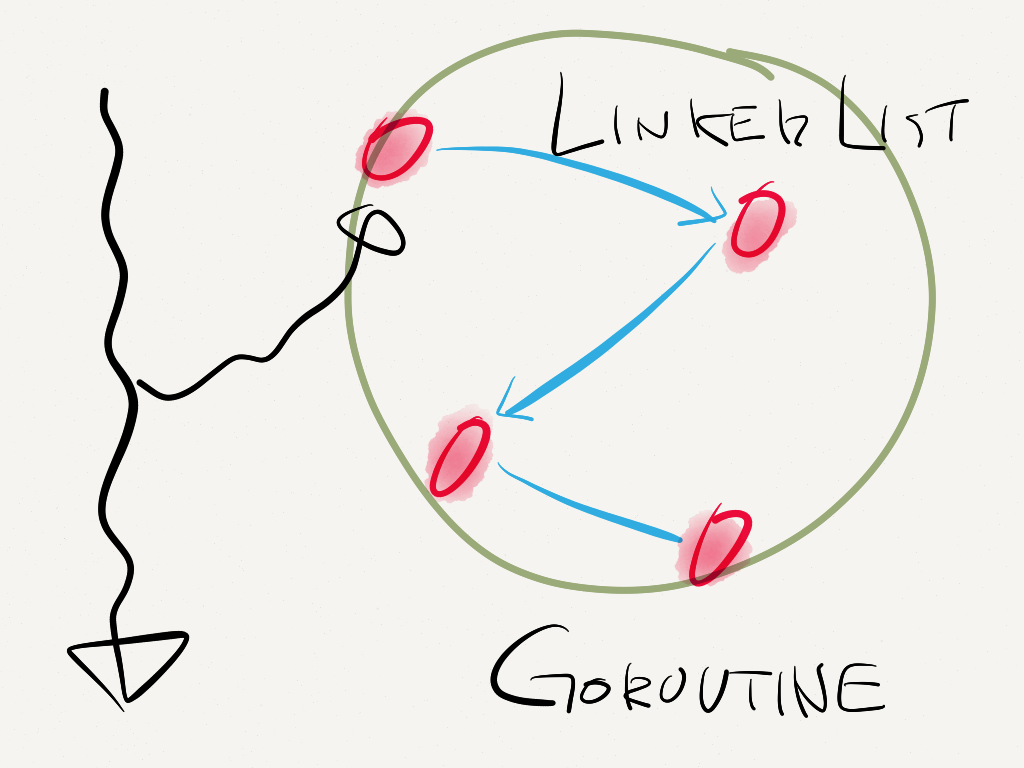 LINKED LIST
GOROUTINE